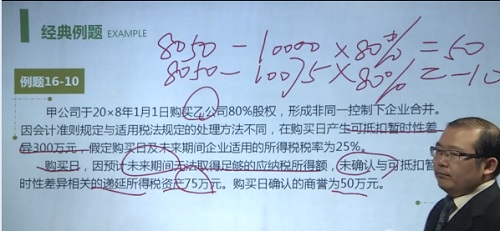 经典例题 EXAMPLE
8050-10000×80%=50
8050-10075×80%=-10
例题16-10
甲公司于20×8年1月1日购买乙公司80%股权，形成非同一控制下企业合并。
因会计准则规定与适用税法规定的处理方法不同，在购买日产生可抵扣暂时性差
异300万元，假定购买日及未来期间企业适用的所得税税率为25%。
购买日，因预计未来期间无法取得足够的应纳税所得额，未确认与可抵扣暂
时性差异相关的递延所得税资产75万元。购买日确认的商誉为50万元。